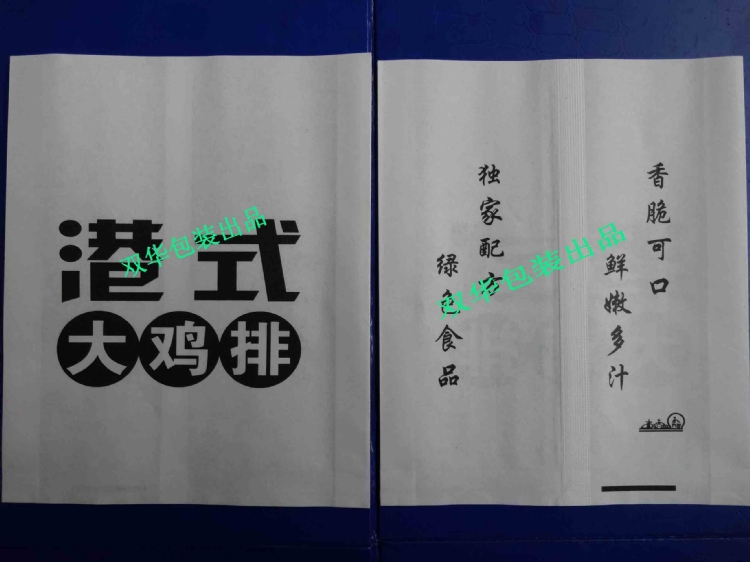 港式
大鸡排
双华包装出品
香脆可口
鲜嫩多汁
独家配方
绿色食品
双华包装出品